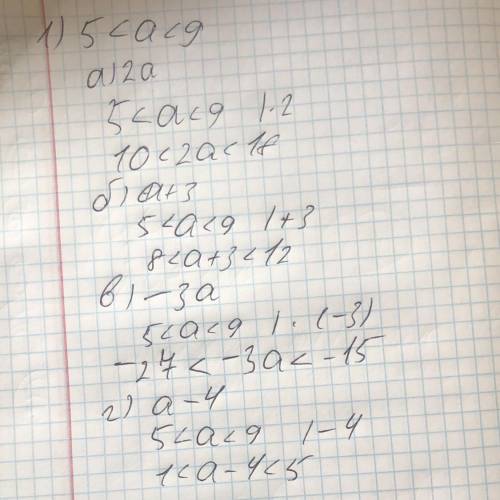 1) 5 < a < 9
а) 2a
5 < a < 9 | · 2
10 < 2a < 18
б) a+3
5 < a < 9 | +3
8 < a+3 < 12
в) -3a
5 < a < 9 | · (-3)
-27 < -3a < -15
г) a-4
5 < a < 9 | -4
1 < a-4 < 5